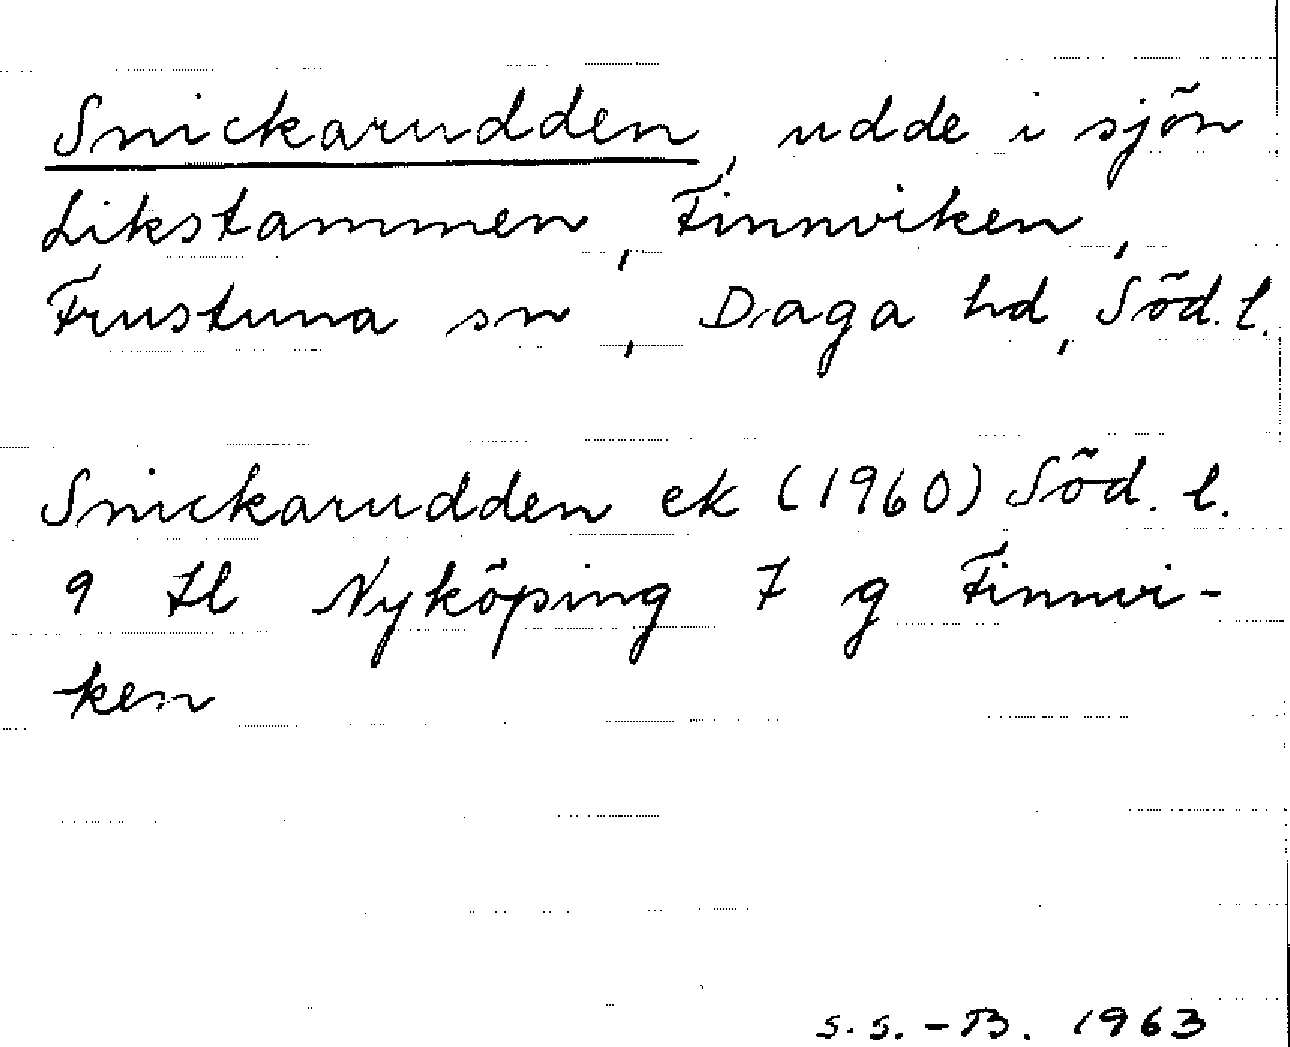 Snickarudden, udde i sjön
Likstammen, Finnviken,
Frustuna sn, Daga hd, Söd. l.
Snickarudden ek (1960) Söd. l.
9 Il Nyköping 7 g Finnvi-
ken
S.S.-B. 1963